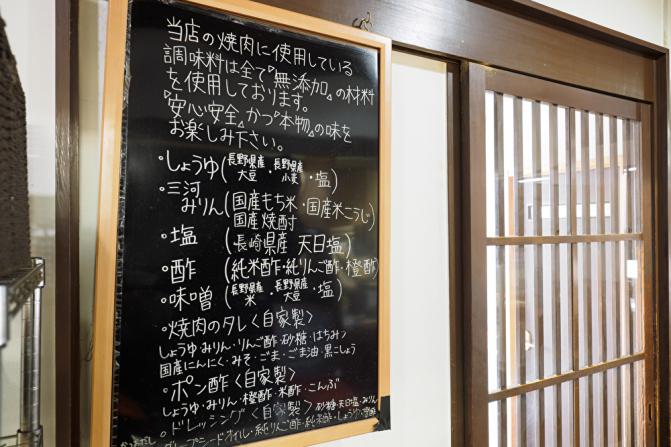 当店の焼肉に使用している
調味料は全て『無添加』の材料
を使用しております。
『安心安全』かつ『本物』の味を
お楽しみ下さい。
・しょうゆ(長野県産大豆・長野県産小麦・塩)
・三河
みりん(国産もち米・国産米こうじ
国産焼酎)
・塩 (長崎県産 天日塩)
・酢 (純米酢・純りんご酢・橙酢)
・味噌 (長野県産米・長野県産大豆・塩)
・焼肉のタレ〈自家製〉
しょうゆ・みりん・りんご酢・砂糖・はちみつ
国産にんにく・みそ・ごま・ごま油・黒こしょう
・ポン酢〈自家製〉
しょうゆ・みりん・橙酢・米酢・こんぶ
・ドレッシング〈自家製〉砂糖・天日塩・みりん
グレープシードオイル・純りんご酢・純米酢・しょうゆ